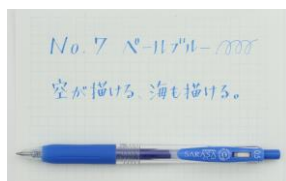 No.7 ペールブルー
空が描ける、海も描ける。
SARASA